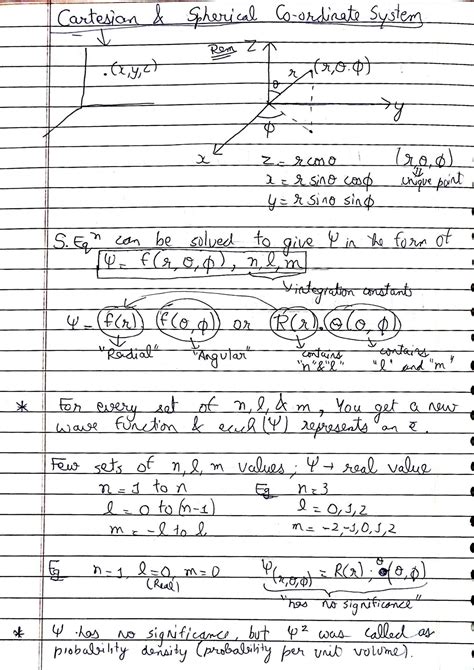 Cartesian & Spherical Co-ordinate System
Rem
Z
.(x,y,z)
r
(r,θ.ϕ)
θ
ϕ
y
x
z = r cosθ
(r,θ,ϕ)
x = r sinθ cosϕ
unique point
y = r sinθ sinϕ
S. Eqⁿ can be solved to give Ψ in the form of
Ψ = f(r,θ,ϕ), n,l,m
integration constants
Ψ = f(r). f(θ,ϕ) or R(r).Θ(θ,ϕ)
"Radial" "Angular" contains "n"&"l" contains "l" and "m"
* For every set of n,l,& m, You get a new
wave function & each (Ψ) represents an e̅.
Few sets of n,l,m values; Ψ → real value
n = 1 to n Eg n=3
l = 0 to (n-1) l = 0,1,2
m = -l to l m = -2,-1,0,1,2
Eg n=1, l=0, m=0 Ψ(r,θ,ϕ) = R(r); Θ(θ,ϕ)
(Real)
"has no significance"
* Ψ has no significance, but Ψ² was called as
probability density (probability per unit volume).